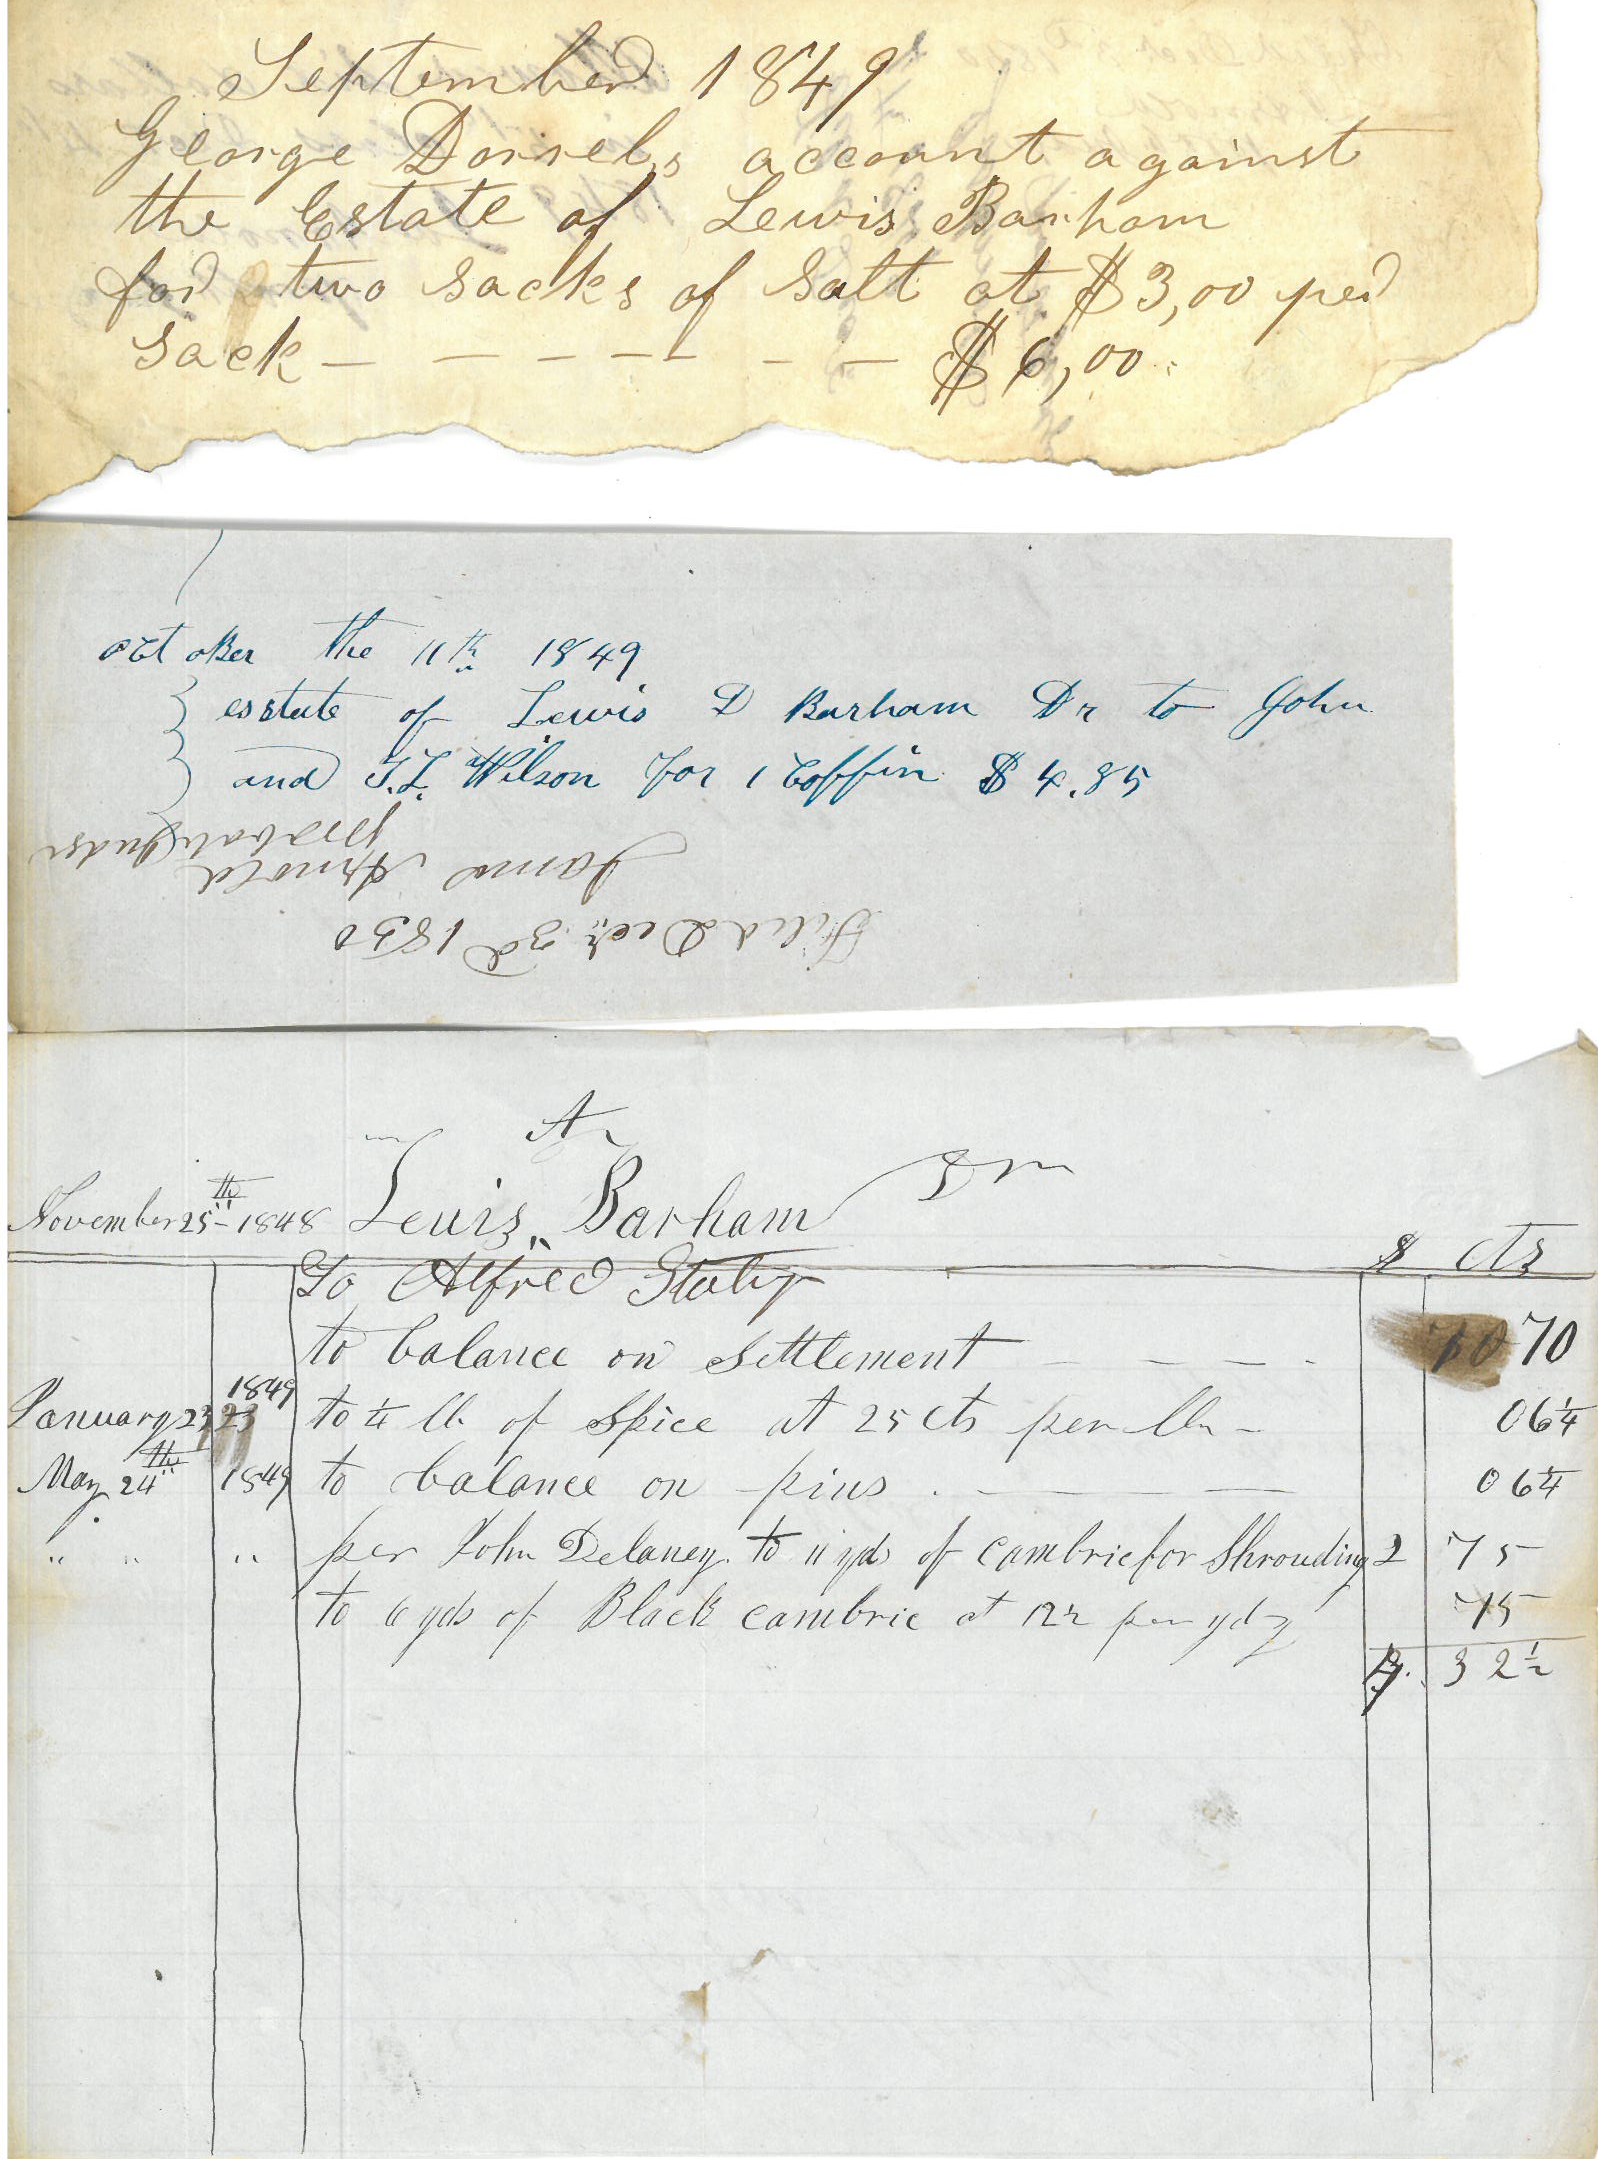 September 1849
George Dorrels account against
the Estate of Lewis Barham
for two sacks of Salt at $3,00 per
Sack – – – – – – – $6,00
october the 11th 1849
esstate of Lewis D Barham Dr to John
and T.L. Wilson for 1 Coffin $4.85
Filed Decr 3d 1850
James Arnold
probate Judge
Lewis Barham Dr
November 25th 1848
$ cts
To Alfred
to balance on Settlement – – – – 70
January 23 1849 to ¼ lb of Spice at 25 cts per lb – 06¼
May 24th 1849 to balance on pins – – – – 06¼
" " " per John Delaney to 11 yds of cambric for Shrouding 2 75
to 6 yds of Black cambric at 12½ per yd 75
32½